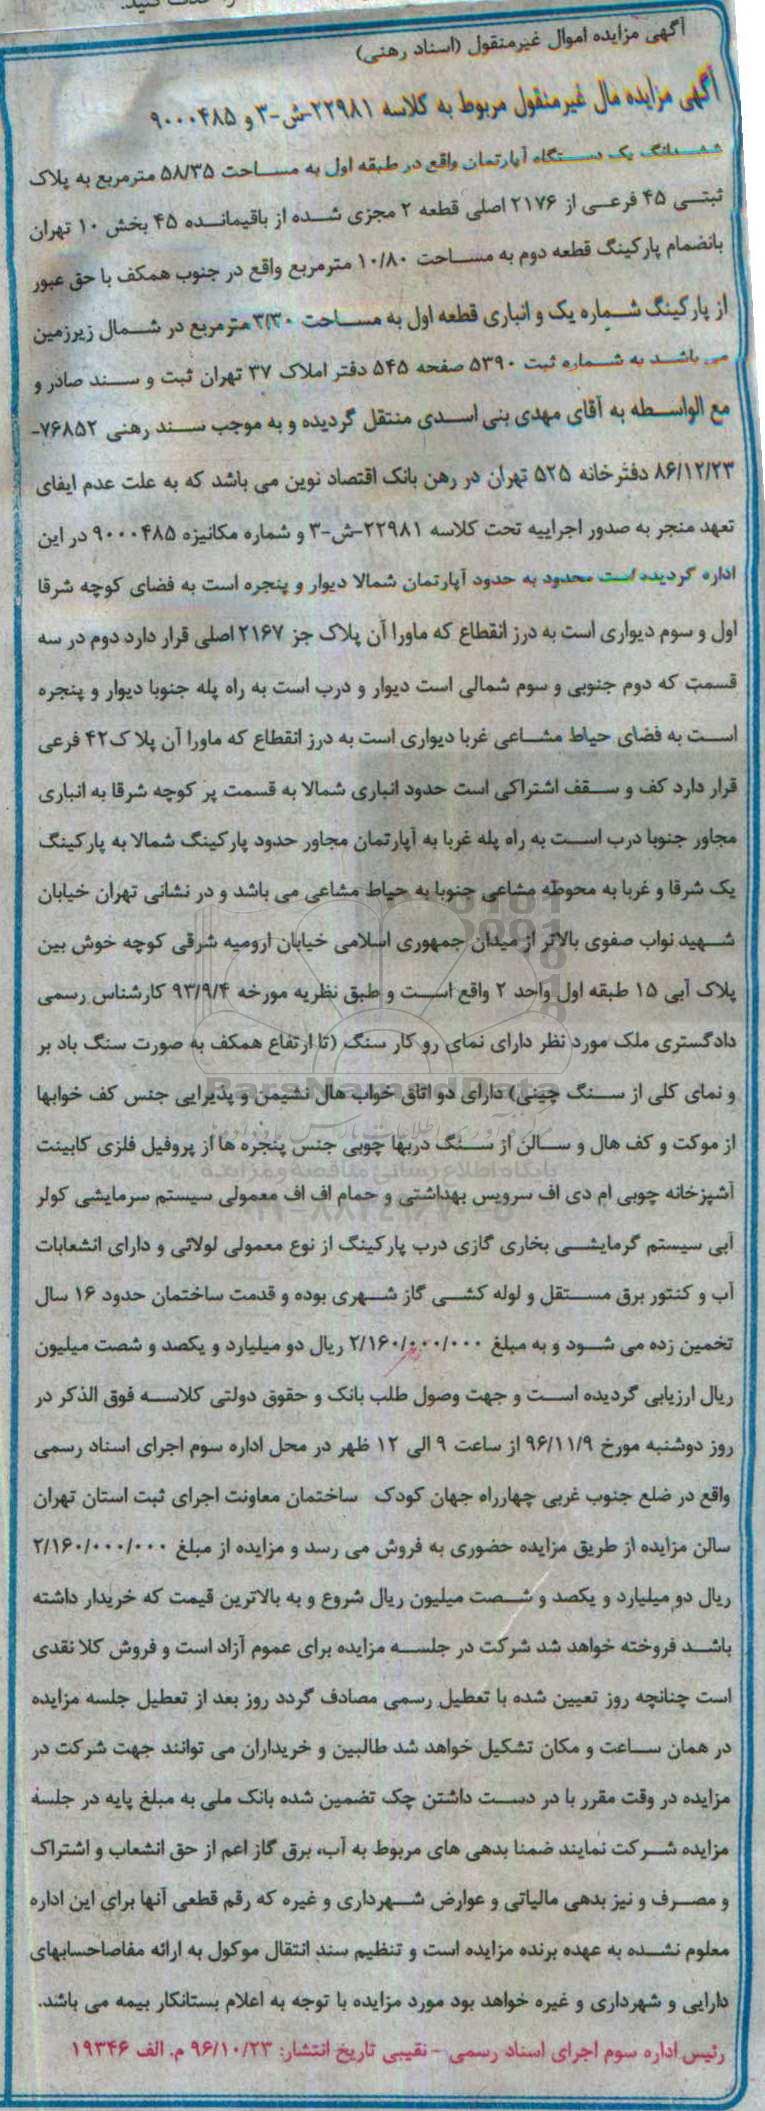 آگهی مزایده اموال غیرمنقول (اسناد رهنی)
آگهی مزایده مال غیرمنقول مربوط به کلاسه ۲۲۹۸۱-ش-۳ و ۹۰۰۰۴۸۵
ششدانگ یک دستگاه آپارتمان واقع در طبقه اول به مساحت ۵۸/۳۵ مترمربع به پلاک
ثبتی ۴۵ فرعی از ۲۱۷۶ اصلی قطعه ۲ مجزی شده از باقیمانده ۴۵ بخش ۱۰ تهران
بانضمام پارکینگ قطعه دوم به مساحت ۱۰/۸۰ مترمربع واقع در جنوب همکف با حق عبور
از پارکینگ شماره یک و انباری قطعه اول به مساحت ۳/۳۰ مترمربع در شمال زیرزمین
می باشد به شماره ثبت ۵۳۹۰ صفحه ۵۴۵ دفتر املاک ۳۷ تهران ثبت و سند صادر و
مع الواسطه به آقای مهدی بنی اسدی منتقل گردیده و به موجب سند رهنی ۷۶۸۵۲-
۸۶/۱۲/۲۳ دفترخانه ۵۲۵ تهران در رهن بانک اقتصاد نوین می باشد که به علت عدم ایفای
تعهد منجر به صدور اجراییه تحت کلاسه ۲۲۹۸۱-ش-۳ و شماره مکانیزه ۹۰۰۰۴۸۵ در این
اداره گردیده است محدود به حدود آپارتمان شمالا دیوار و پنجره است به فضای کوچه شرقا
اول و سوم دیواری است به درز انقطاع که ماورا آن پلاک جز ۲۱۶۷ اصلی قرار دارد دوم در سه
قسمت که دوم جنوبی و سوم شمالی است دیوار و درب است به راه پله جنوبا دیوار و پنجره
است به فضای حیاط مشاعی غربا دیواری است به درز انقطاع که ماورا آن پلا ک۴۲ فرعی
قرار دارد کف و سقف اشتراکی است حدود انباری شمالا به قسمت پر کوچه شرقا به انباری
مجاور جنوبا درب است به راه پله غربا به آپارتمان مجاور حدود پارکینگ شمالا به پارکینگ
یک شرقا و غربا به محوطه مشاعی جنوبا به حیاط مشاعی می باشد و در نشانی تهران خیابان
شهید نواب صفوی بالاتر از میدان جمهوری اسلامی خیابان ارومیه شرقی کوچه خوش بین
پلاک آبی ۱۵ طبقه اول واحد ۲ واقع است و طبق نظریه مورخه ۹۳/۹/۴ کارشناس رسمی
دادگستری ملک مورد نظر دارای نمای رو کار سنگ (تا ارتفاع همکف به صورت سنگ باد بر
و نمای کلی از سنگ چینی) دارای دو اتاق خواب هال نشیمن و پذیرایی جنس کف خوابها
از موکت و کف هال و سالن از سنگ دربها چوبی جنس پنجره ها از پروفیل فلزی کابینت
آشپزخانه چوبی ام دی اف سرویس بهداشتی و حمام اف اف معمولی سیستم سرمایشی کولر
آبی سیستم گرمایشی بخاری گازی درب پارکینگ از نوع معمولی لولائی و دارای انشعابات
آب و کنتور برق مستقل و لوله کشی گاز شهری بوده و قدمت ساختمان حدود ۱۶ سال
تخمین زده می شود و به مبلغ ۲/۱۶۰/۰۰۰/۰۰۰ ریال دو میلیارد و یکصد و شصت میلیون
ریال ارزیابی گردیده است و جهت وصول طلب بانک و حقوق دولتی کلاسه فوق الذکر در
روز دوشنبه مورخ ۹۶/۱۱/۹ از ساعت ۹ الی ۱۲ ظهر در محل اداره سوم اجرای اسناد رسمی
واقع در ضلع جنوب غربی چهارراه جهان کودک ساختمان معاونت اجرای ثبت استان تهران
سالن مزایده از طریق مزایده حضوری به فروش می رسد و مزایده از مبلغ ۲/۱۶۰/۰۰۰/۰۰۰
ریال دو میلیارد و یکصد و شصت میلیون ریال شروع و به بالاترین قیمت که خریدار داشته
باشد فروخته خواهد شد شرکت در جلسه مزایده برای عموم آزاد است و فروش کلا نقدی
است چنانچه روز تعیین شده با تعطیل رسمی مصادف گردد روز بعد از تعطیل جلسه مزایده
در همان ساعت و مکان تشکیل خواهد شد طالبین و خریداران می توانند جهت شرکت در
مزایده در وقت مقرر با در دست داشتن چک تضمین شده بانک ملی به مبلغ پایه در جلسه
مزایده شرکت نمایند ضمنا بدهی های مربوط به آب، برق گاز اعم از حق انشعاب و اشتراک
و مصرف و نیز بدهی مالیاتی و عوارض شهرداری و غیره که رقم قطعی آنها برای این اداره
معلوم نشده به عهده برنده مزایده است و تنظیم سند انتقال موکول به ارائه مفاصاحسابهای
دارایی و شهرداری و غیره خواهد بود مورد مزایده با توجه به اعلام بستانکار بیمه می باشد.
رئیس اداره سوم اجرای اسناد رسمی - نقیبی تاریخ انتشار: ۹۶/۱۰/۲۳ م. الف ۱۹۳۴۶